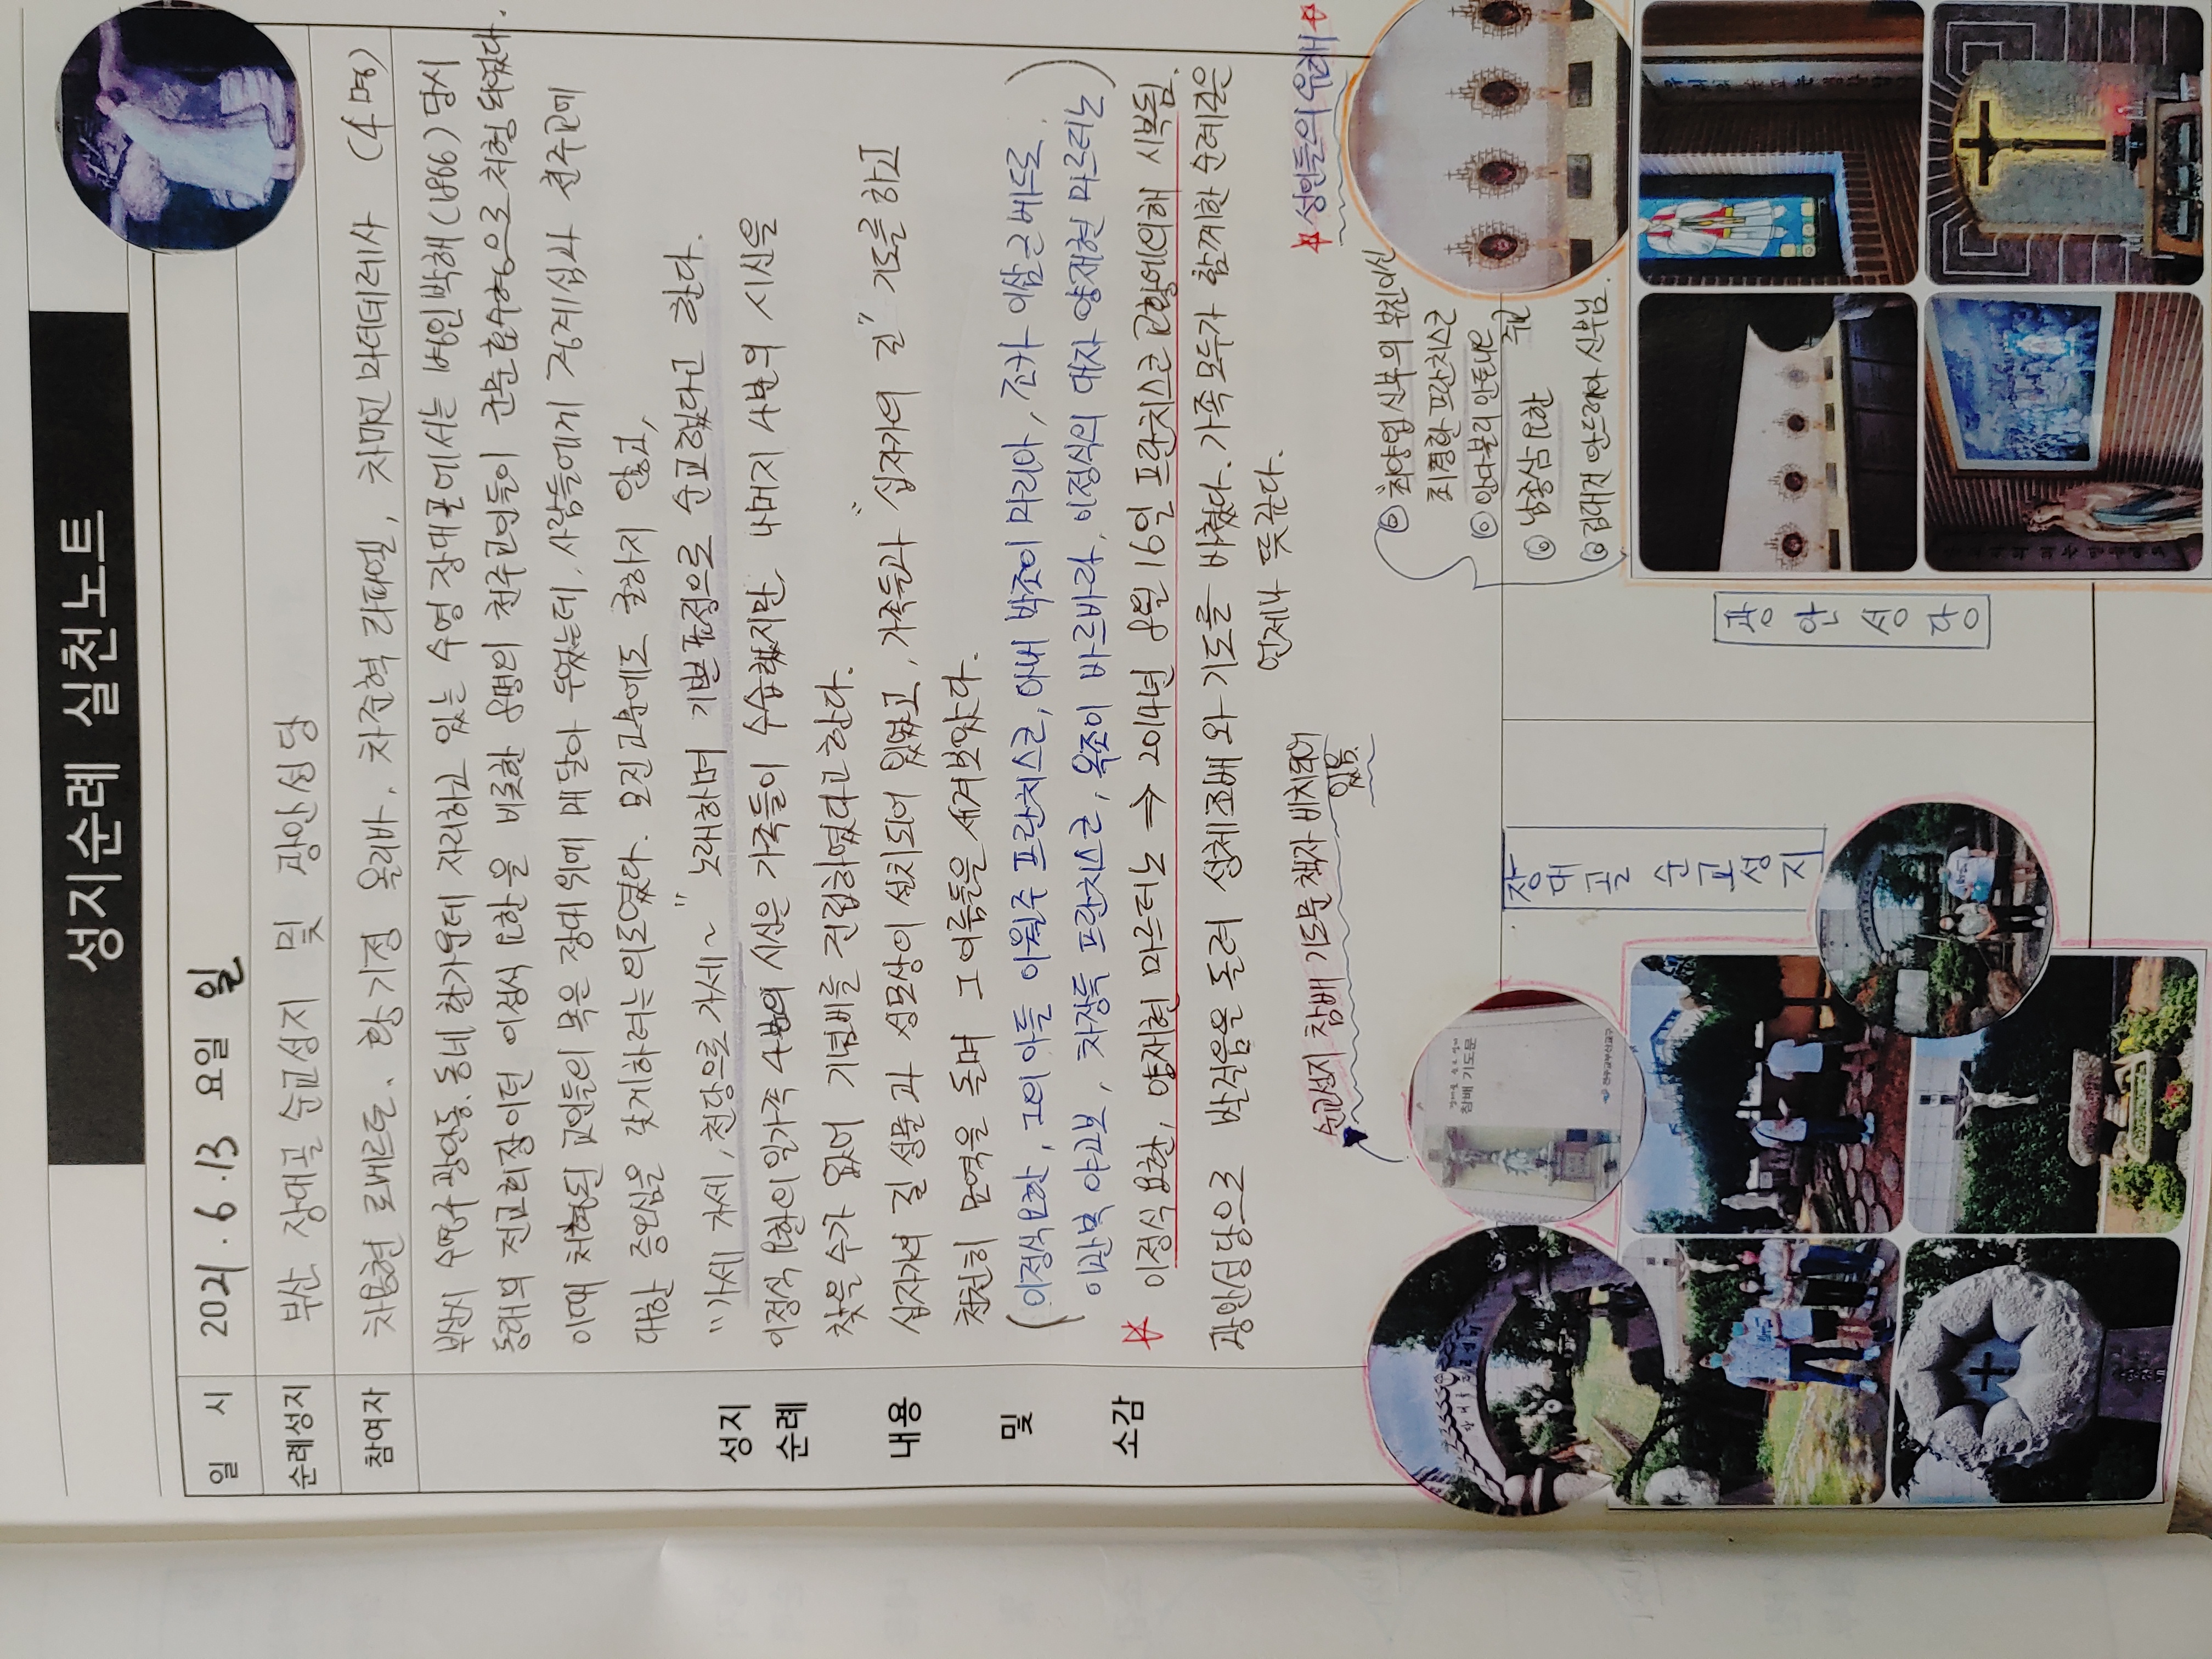 성지순례 실천노트
일 시 2021. 6. 13 요일 일
순례성지 부산 장대골 순교성지 및 광안성당
참여자 차용현 로베르토, 황기정 올리바, 차준혁 라파엘, 차 마더데레사 (4명)
부산시 수영구 광안동, 동네 한가운데 자리하고 있는 수영 장대골에서는 병인박해(1866) 당시
동래의 전교회장이던 이정식 요한을 비롯한 8명의 천주교인들이 군문효수형으로 처형 되었다.
이때 처형된 교인들의 목은 장대 위에 매달아 두었는데, 사람들에게 경계심과 천주교에
대한 증오심을 갖게하려는 의도였다. 모진 고문에도 굴하지 않고,
"가세 가세, 천당으로 가세~" 노래하며 기쁜 표정으로 순교했다고 한다.
성지
순례
내용
및
소감
이정식 요한의 일가족 4분의 시신은 가족들이 수습했지만 나머지 4분의 시신을
찾을 수가 없어 기념비를 건립하였다고 한다.
십자가의 길 성물과 성모상이 설치되어 있었고, 가족들과 "십자가의 길" 기도를 하고
천천히 묘역을 돌며 그 이름들을 새겨보았다.
(이정식 요한, 그의 아들 이월주 프란치스코, 아내 박조이 마리아, 조카 이삼근 베드로,
이관복 야고보, 차장득 프란치스코, 옥조이 바르바라, 이정식의 대자 양재현 마르티노)
☆ 이정식 요한, 양재현 마르티노 ⇒ 2014년 8월 16일 프란치스코 교황에의해 시복됨.
광안성당으로 발걸음을 돌려 성체조배와 기도를 바쳤다. 가족 모두가 함께한 순례길은
언제나 뜻깊다.
순교성지 참배 기도문 책자 비치되어
있음
참배 기도문
장대골순교성지
☆ 성인들의 유해 ☆
◎ 최양업 신부의 부친이신
최경환 프란치스코
◎ 앙다블뤼 안토니오
주교
◎ 남종삼 요한
◎ 김대건 안드레아 신부님.
광안성당